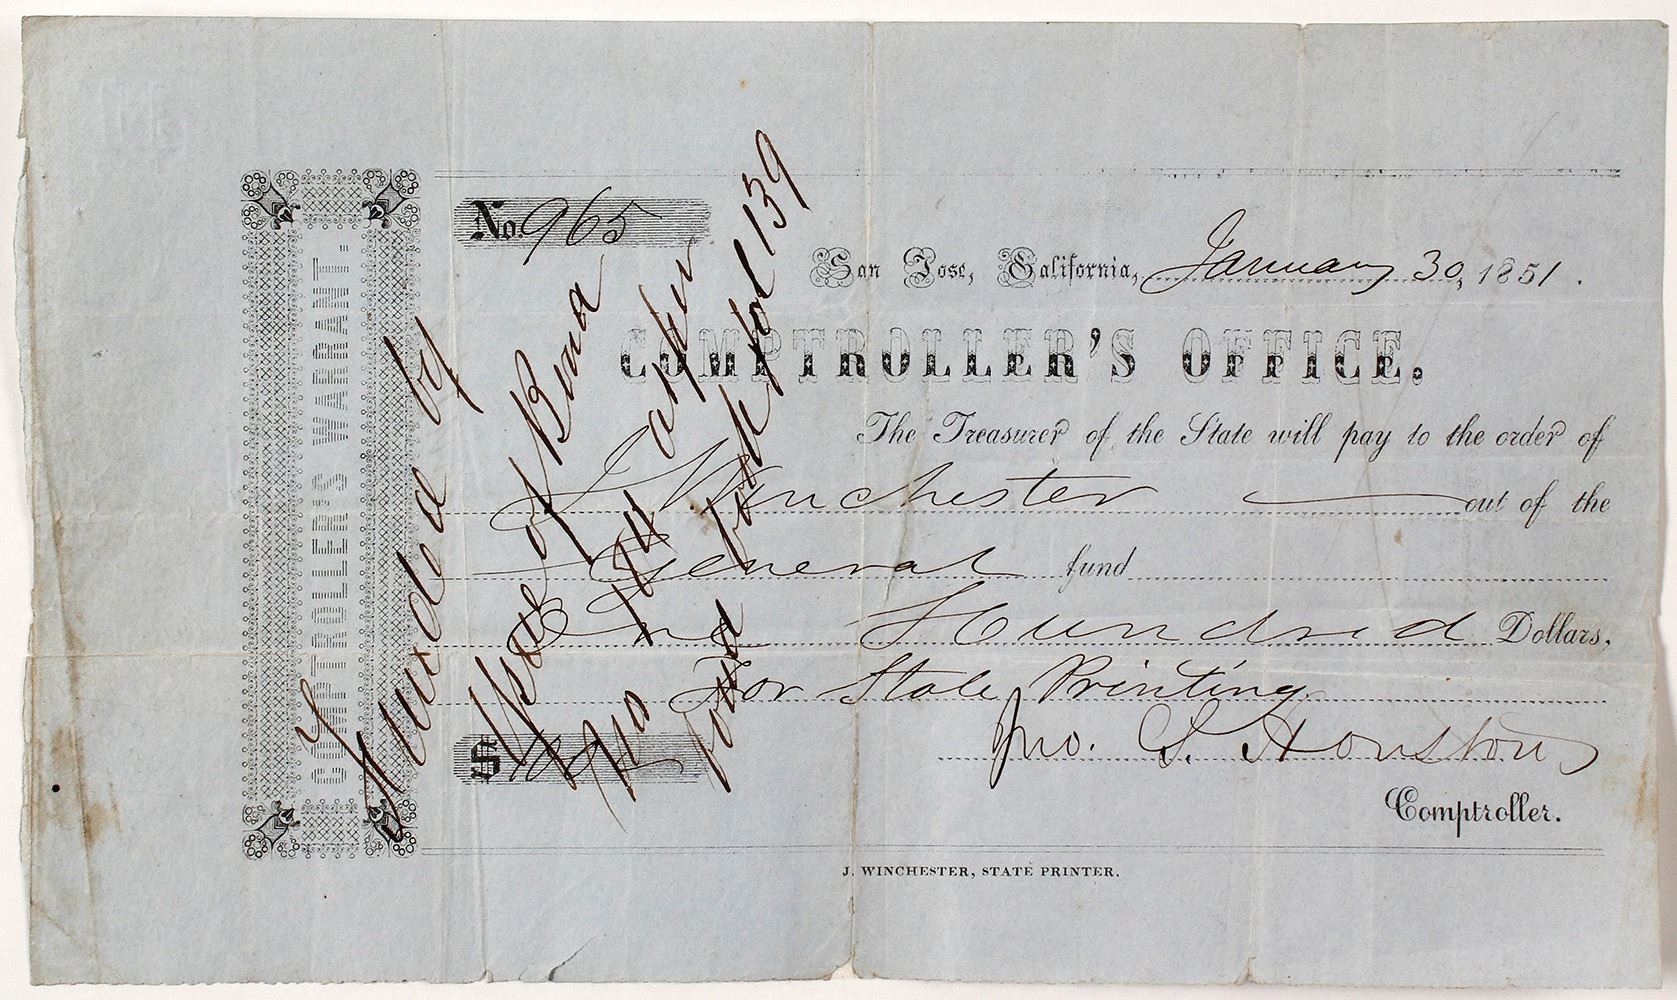 COMPTROLLER'S WARRANT.
No. 965
San Jose, California, January 30, 1851.
COMPTROLLER'S OFFICE.
The Treasurer of the State will pay to the order of
J Winchester out of the
General fund
One Hundred Dollars,
For State Printing
$100
Jno. S. Houston
Comptroller.
J. WINCHESTER, STATE PRINTER.
Funded by
issue of Bond
No 1511
bond book fol 139